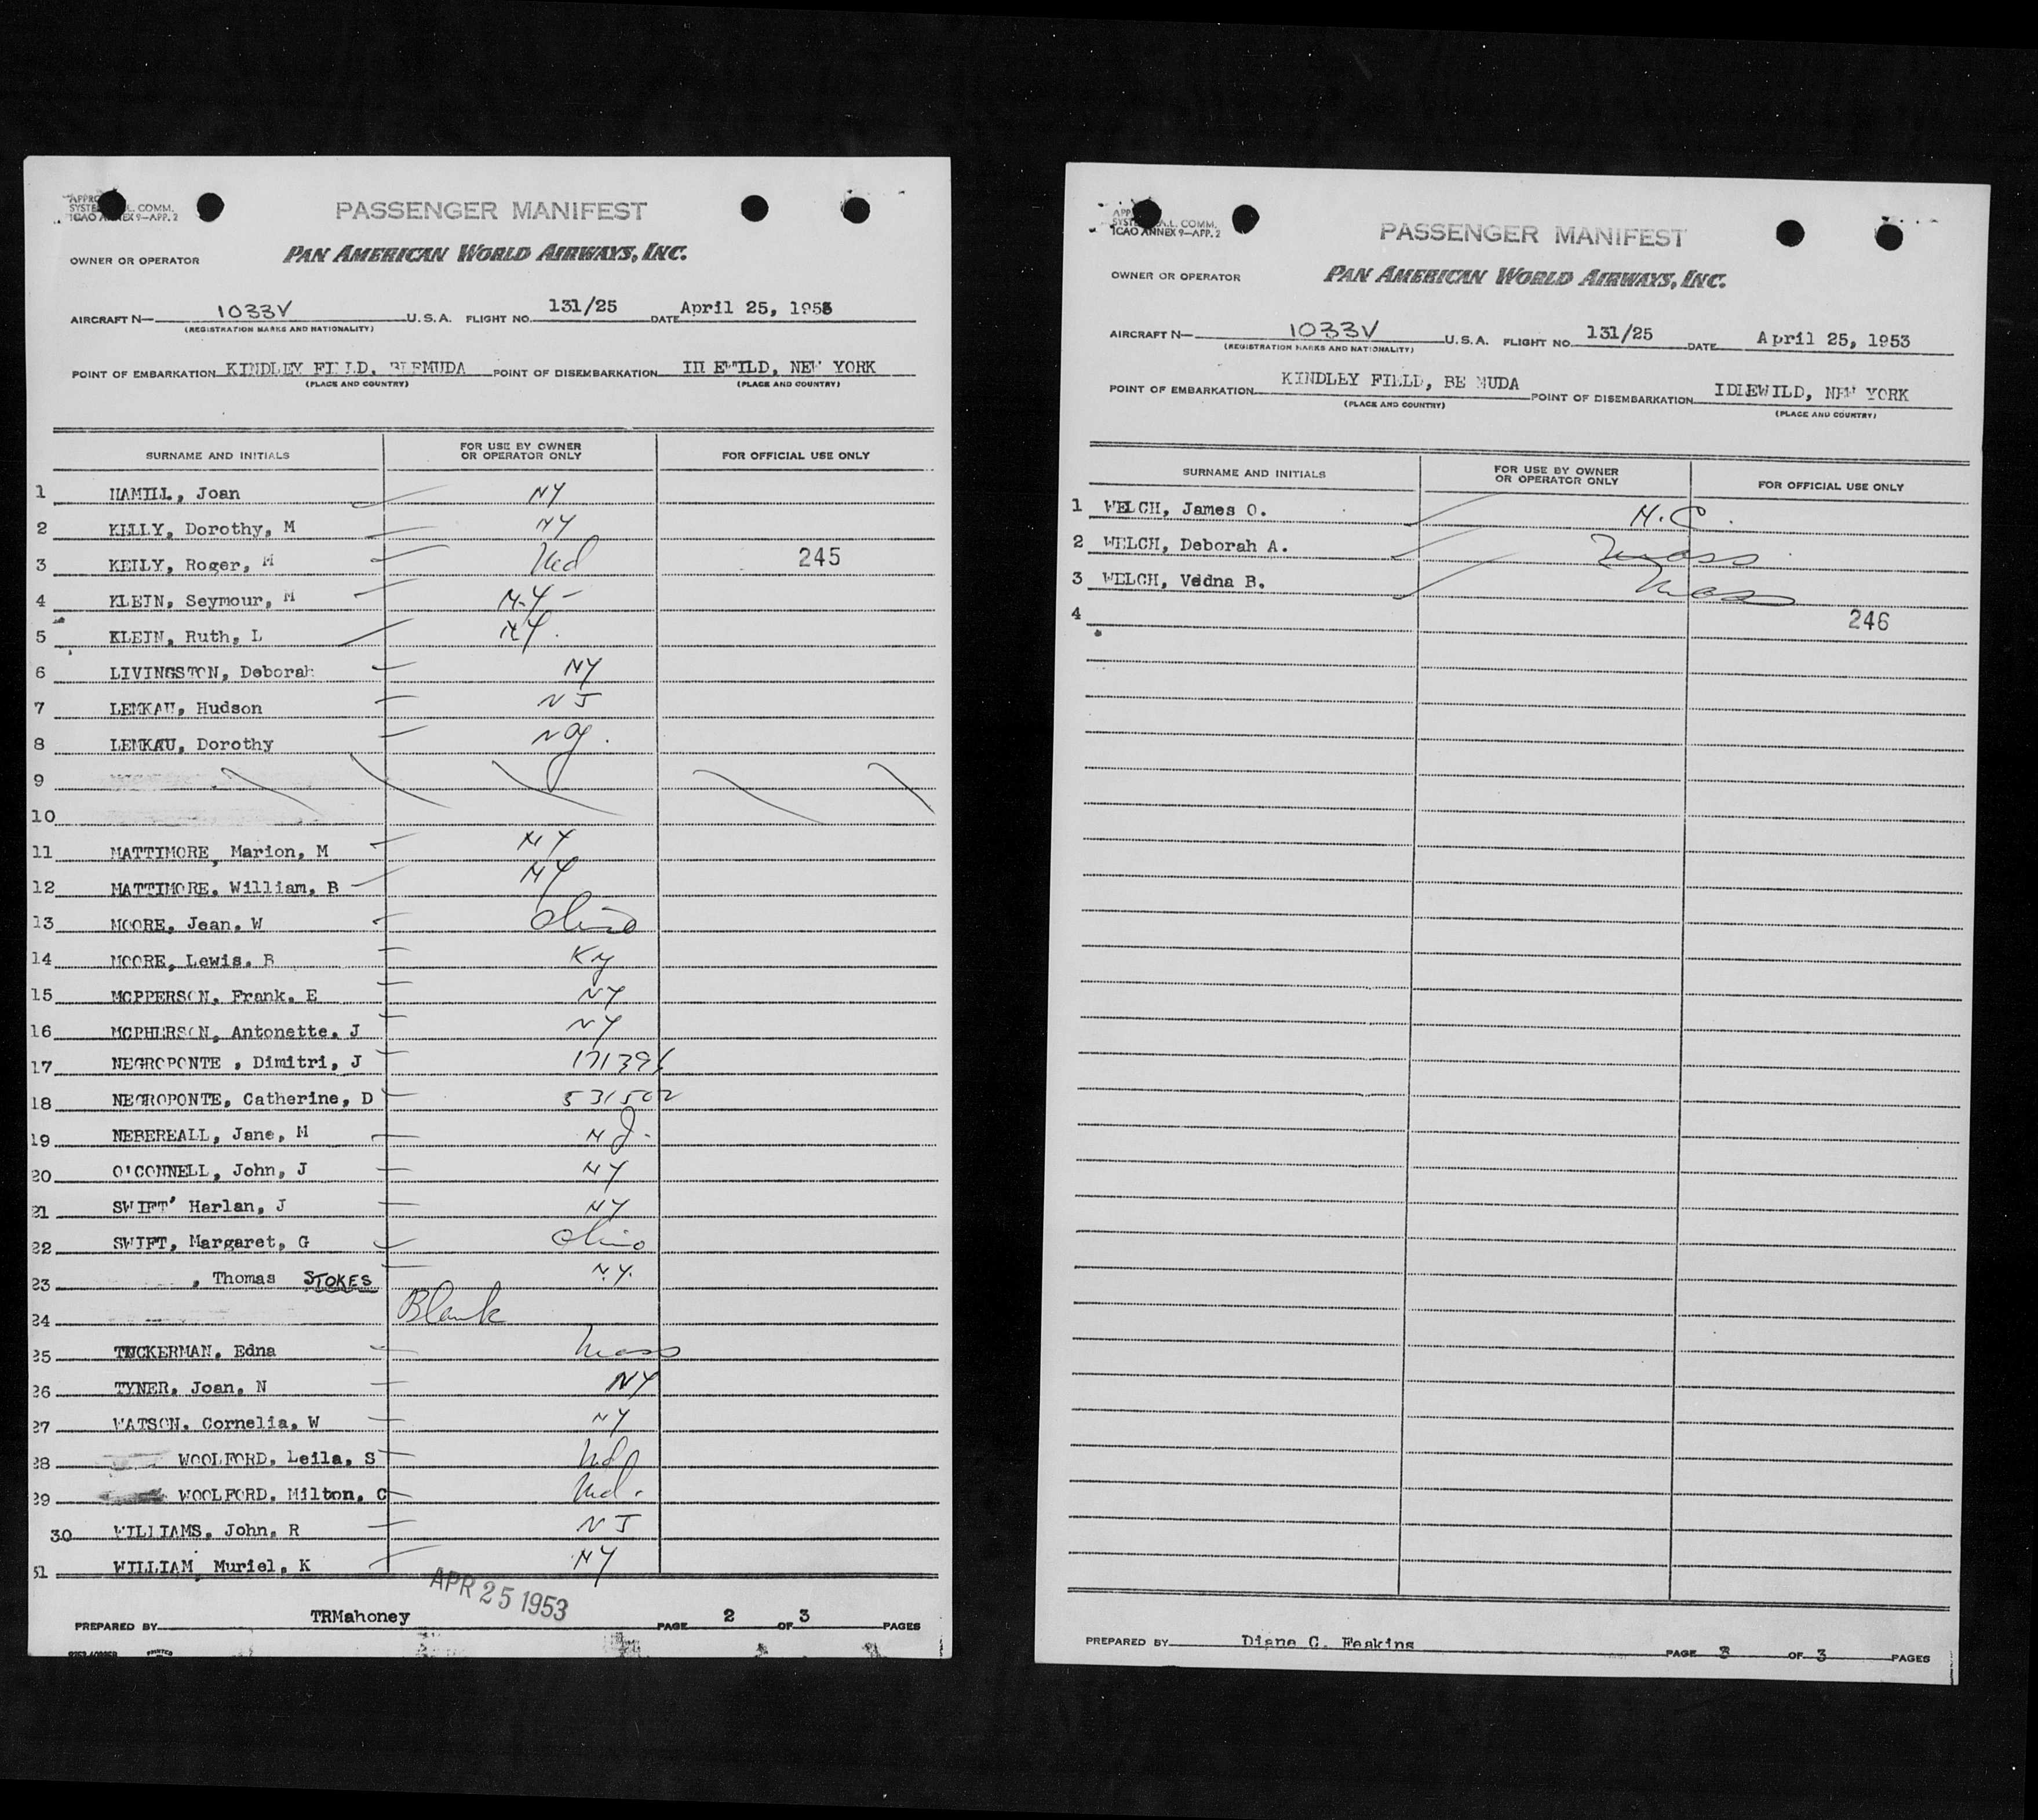 SYSTE L. COMM.
ICAO ANNEX 9—APP. 2
PASSENGER MANIFEST
OWNER OR OPERATOR PAN AMERICAN WORLD AIRWAYS, INC.
AIRCRAFT N— 1033V U.S.A. FLIGHT NO. 131/25 DATE April 25, 1953
(REGISTRATION MARKS AND NATIONALITY)
POINT OF EMBARKATION KINDLEY FIELD, BERMUDA POINT OF DISEMBARKATION IDLEWILD, NEW YORK
(PLACE AND COUNTRY) (PLACE AND COUNTRY)
SURNAME AND INITIALS FOR USE BY OWNER OR OPERATOR ONLY FOR OFFICIAL USE ONLY
1 HAMILL, Joan NY
2 KELLY, Dorothy, M NY
3 KEILY, Roger, M Md 245
4 KLEIN, Seymour, M N.Y –
5 KLEIN, Ruth, L NY.
6 LIVINGSTON, Deborah NY
7 LEMKAU, Hudson NJ
8 LEMKAU, Dorothy NY.
9
10
11 MATTIMORE, Marion, M NY
12 MATTIMORE. William, B NY
13 MOORE, Jean. W Ohio
14 MOORE, Lewis. B Ky
15 MCPPERSON, Frank. E NY
16 MCPHERSON, Antonette. J NY
17 NEGROPONTE , Dimitri, J 171396
18 NEGROPONTE, Catherine, D 531502
19 NEBEREALL, Jane, M NJ.
20 O'CONNELL, John, J NY
21 SWIFT' Harlan, J NY
22 SWIFT, Margaret, G Ohio
23 , Thomas STOKES N.Y.
24 Blank
25 TUCKERMAN. Edna Mass
26 TYNER, Joan, N NY
27 WATSON. Cornelia, W NY
28 WOOLFORD. Leila, S Md
29 WOOLFORD. Milton, C Md.
30 WILLIAMS, John, R NJ
31 WILLIAM, Muriel, K NY
APR 25 1953
PREPARED BY TRMahoney PAGE 2 OF 3 PAGES
SYSTE A.L. COMM.
ICAO ANNEX 9—APP. 2
PASSENGER MANIFEST
OWNER OR OPERATOR PAN AMERICAN WORLD AIRWAYS, INC.
AIRCRAFT N— 1033V U.S.A. FLIGHT NO. 131/25 DATE April 25, 1953
(REGISTRATION MARKS AND NATIONALITY)
POINT OF EMBARKATION KINDLEY FIELD, BE MUDA POINT OF DISEMBARKATION IDLEWILD, NEW YORK
(PLACE AND COUNTRY) (PLACE AND COUNTRY)
SURNAME AND INITIALS FOR USE BY OWNER OR OPERATOR ONLY FOR OFFICIAL USE ONLY
1 WELCH, James O. N.C.
2 WELCH, Deborah A. Mass
3 WELCH, Vedna B. Mass
4 246
PREPARED BY Diane C. Feakins PAGE 3 OF 3 PAGES